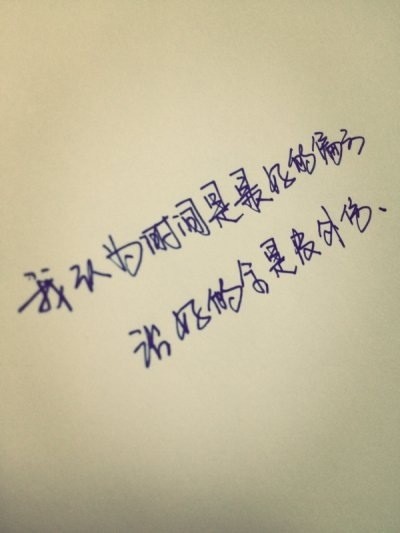 我认为时间是最好的偏方
治好的全是皮外伤、